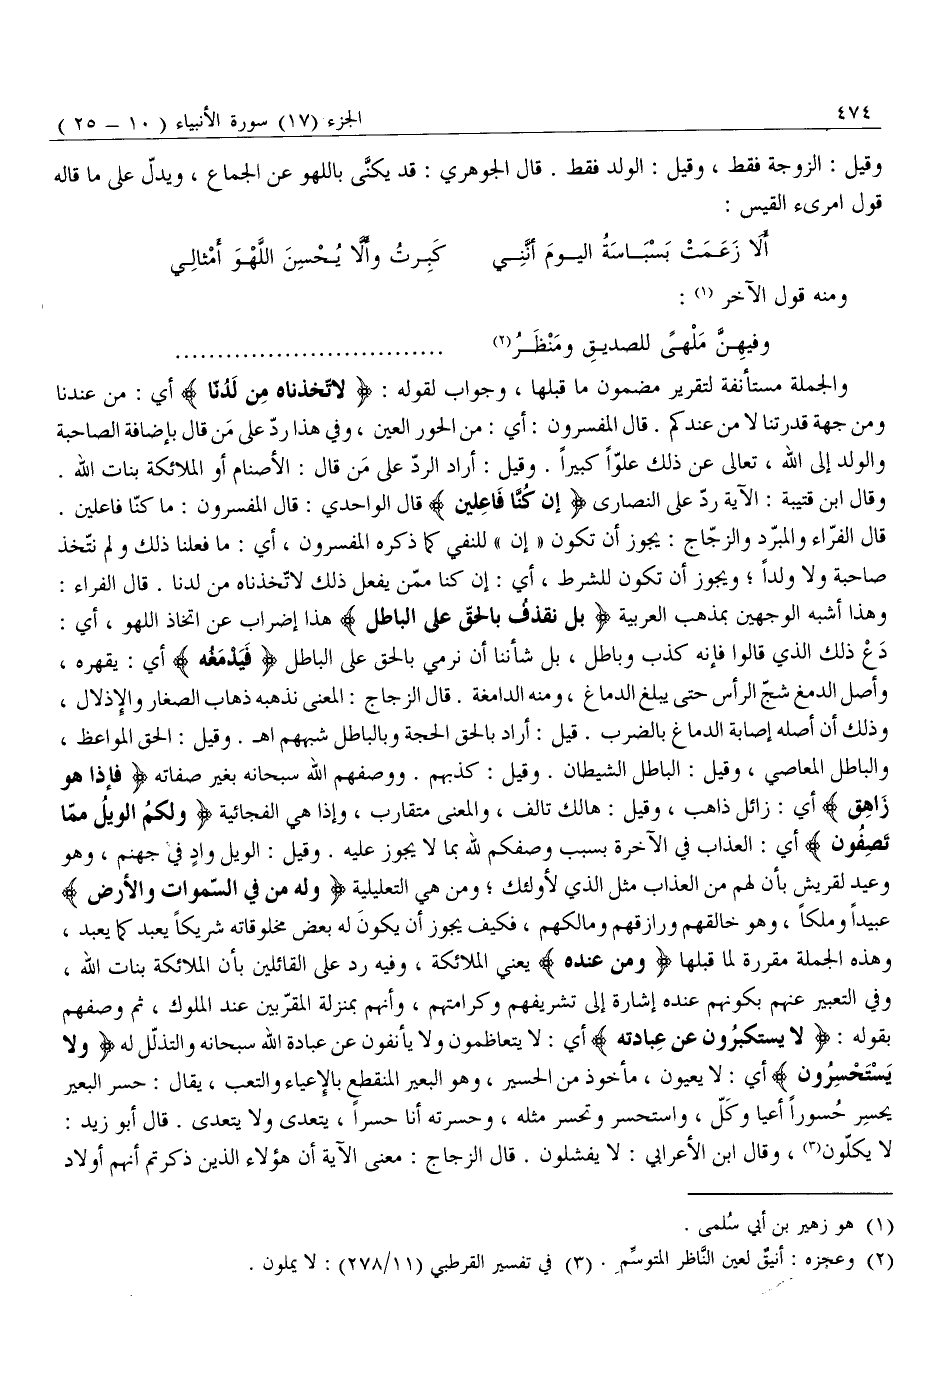 ٤٧٤
الجزء (١٧) سورة الأنبياء ( ١٠ – ٢٥ )
وقيل : الزوجة فقط ، وقيل : الولد فقط . قال الجوهري : قد يكنَّى باللهو عن الجماع ، ويدلّ على ما قاله
قول امرىء القيس :
أَلَا زَعَمَتْ بَسْبَاسَةُ اليومَ أَنَّنِي كَبِرتُ وأَلَّا يُحْسِنَ اللَّهْوَ أَمْثالِي
ومنه قول الآخر (١) :
وفيهِنَّ مَلْهىً للصديقِ ومَنْظَرُ(٢) ................................
والجملة مستأنفة لتقرير مضمون ما قبلها ، وجواب لقوله : ﴿ لاتّخذناه مِن لَدُنّا ﴾ أي : من عندنا
ومن جهة قدرتنا لا من عندكم . قال المفسرون : أي : من الحور العين ، وفي هذا ردّ على مَن قال بإضافة الصاحبة
والولد إلى الله ، تعالى عن ذلك علوّاً كبيراً . وقيل : أراد الردّ على مَن قال : الأصنام أو الملائكة بنات الله .
وقال ابن قتيبة : الآية ردّ على النصارى ﴿ إن كُنَّا فَاعِلين ﴾ قال الواحدي : قال المفسرون : ما كنّا فاعلين .
قال الفرّاء والمبرّد والزجّاج : يجوز أن تكون « إن » للنفي كما ذكره المفسرون ، أي : ما فعلنا ذلك ولم نتّخذ
صاحبة ولا ولداً ؛ ويجوز أن تكون للشرط ، أي : إن كنا ممّن يفعل ذلك لاتّخذناه من لدنا . قال الفراء :
وهذا أشبه الوجهين بمذهب العربية ﴿ بل نقذفُ بالحقّ على الباطل ﴾ هذا إضراب عن اتخاذ اللهو ، أي :
دَعْ ذلك الذي قالوا فإنه كذب وباطل ، بل شأننا أن نرمي بالحق على الباطل ﴿ فَيَدْمَغُه ﴾ أي : يقهره ،
وأصل الدمغ شجّ الرأس حتى يبلغ الدماغ ، ومنه الدامغة . قال الزجاج : المعنى نذهبه ذهاب الصغار والإذلال ،
وذلك أن أصله إصابة الدماغ بالضرب . قيل : أراد بالحق الحجة وبالباطل شبههم اهـ . وقيل : الحق المواعظ ،
والباطل المعاصي ، وقيل : الباطل الشيطان . وقيل : كذبهم . ووصفهم الله سبحانه بغير صفاته ﴿ فإذا هو
زَاهِق ﴾ أي : زائل ذاهب ، وقيل : هالك تالف ، والمعنى متقارب ، وإذا هي الفجائية ﴿ ولكمُ الويلُ ممّا
تَصِفُون ﴾ أي : العذاب في الآخرة بسبب وصفكم لله بما لا يجوز عليه . وقيل : الويل وادٍ في جهنم ، وهو
وعيد لقريش بأن لهم من العذاب مثل الذي لأولئك ؛ ومن هي التعليلية ﴿ وله من في السّموات والأرض ﴾
عبيداً وملكاً ، وهو خالقهم ورازقهم ومالكهم ، فكيف يجوز أن يكونَ له بعض مخلوقاته شريكاً يعبد كما يعبد ،
وهذه الجملة مقررة لما قبلها ﴿ ومن عنده ﴾ يعني الملائكة ، وفيه رد على القائلين بأن الملائكة بنات الله ،
وفي التعبير عنهم بكونهم عنده إشارة إلى تشريفهم وكرامتهم ، وأنهم بمنزلة المقرّبين عند الملوك ، ثم وصفهم
بقوله : ﴿ لا يستكبرُون عن عِبادته ﴾ أي : لا يتعاظمون ولا يأنفون عن عبادة الله سبحانه والتذلّل له ﴿ ولا
يَسْتَحْسِرُون ﴾ أي : لا يعيون ، مأخوذ من الحسير ، وهو البعير المنقطع بالإعياء والتعب ، يقال : حسر البعير
يحسِر حُسوراً أعيا وكَلّ ، واستحسر وتحسر مثله ، وحسرته أنا حسراً ، يتعدى ولا يتعدى . قال أبو زيد :
لا يكلّون(٣) ، وقال ابن الأعرابي : لا يفشلون . قال الزجاج : معنى الآية أن هؤلاء الذين ذكرتم أنهم أولاد
(١) هو زهير بن أبي سُلمى .
(٢) وعجزه : أنيقٌ لعين النَّاظر المتوسِّم . (٣) في تفسير القرطبي (٢٧٨/١١) : لا يملون .